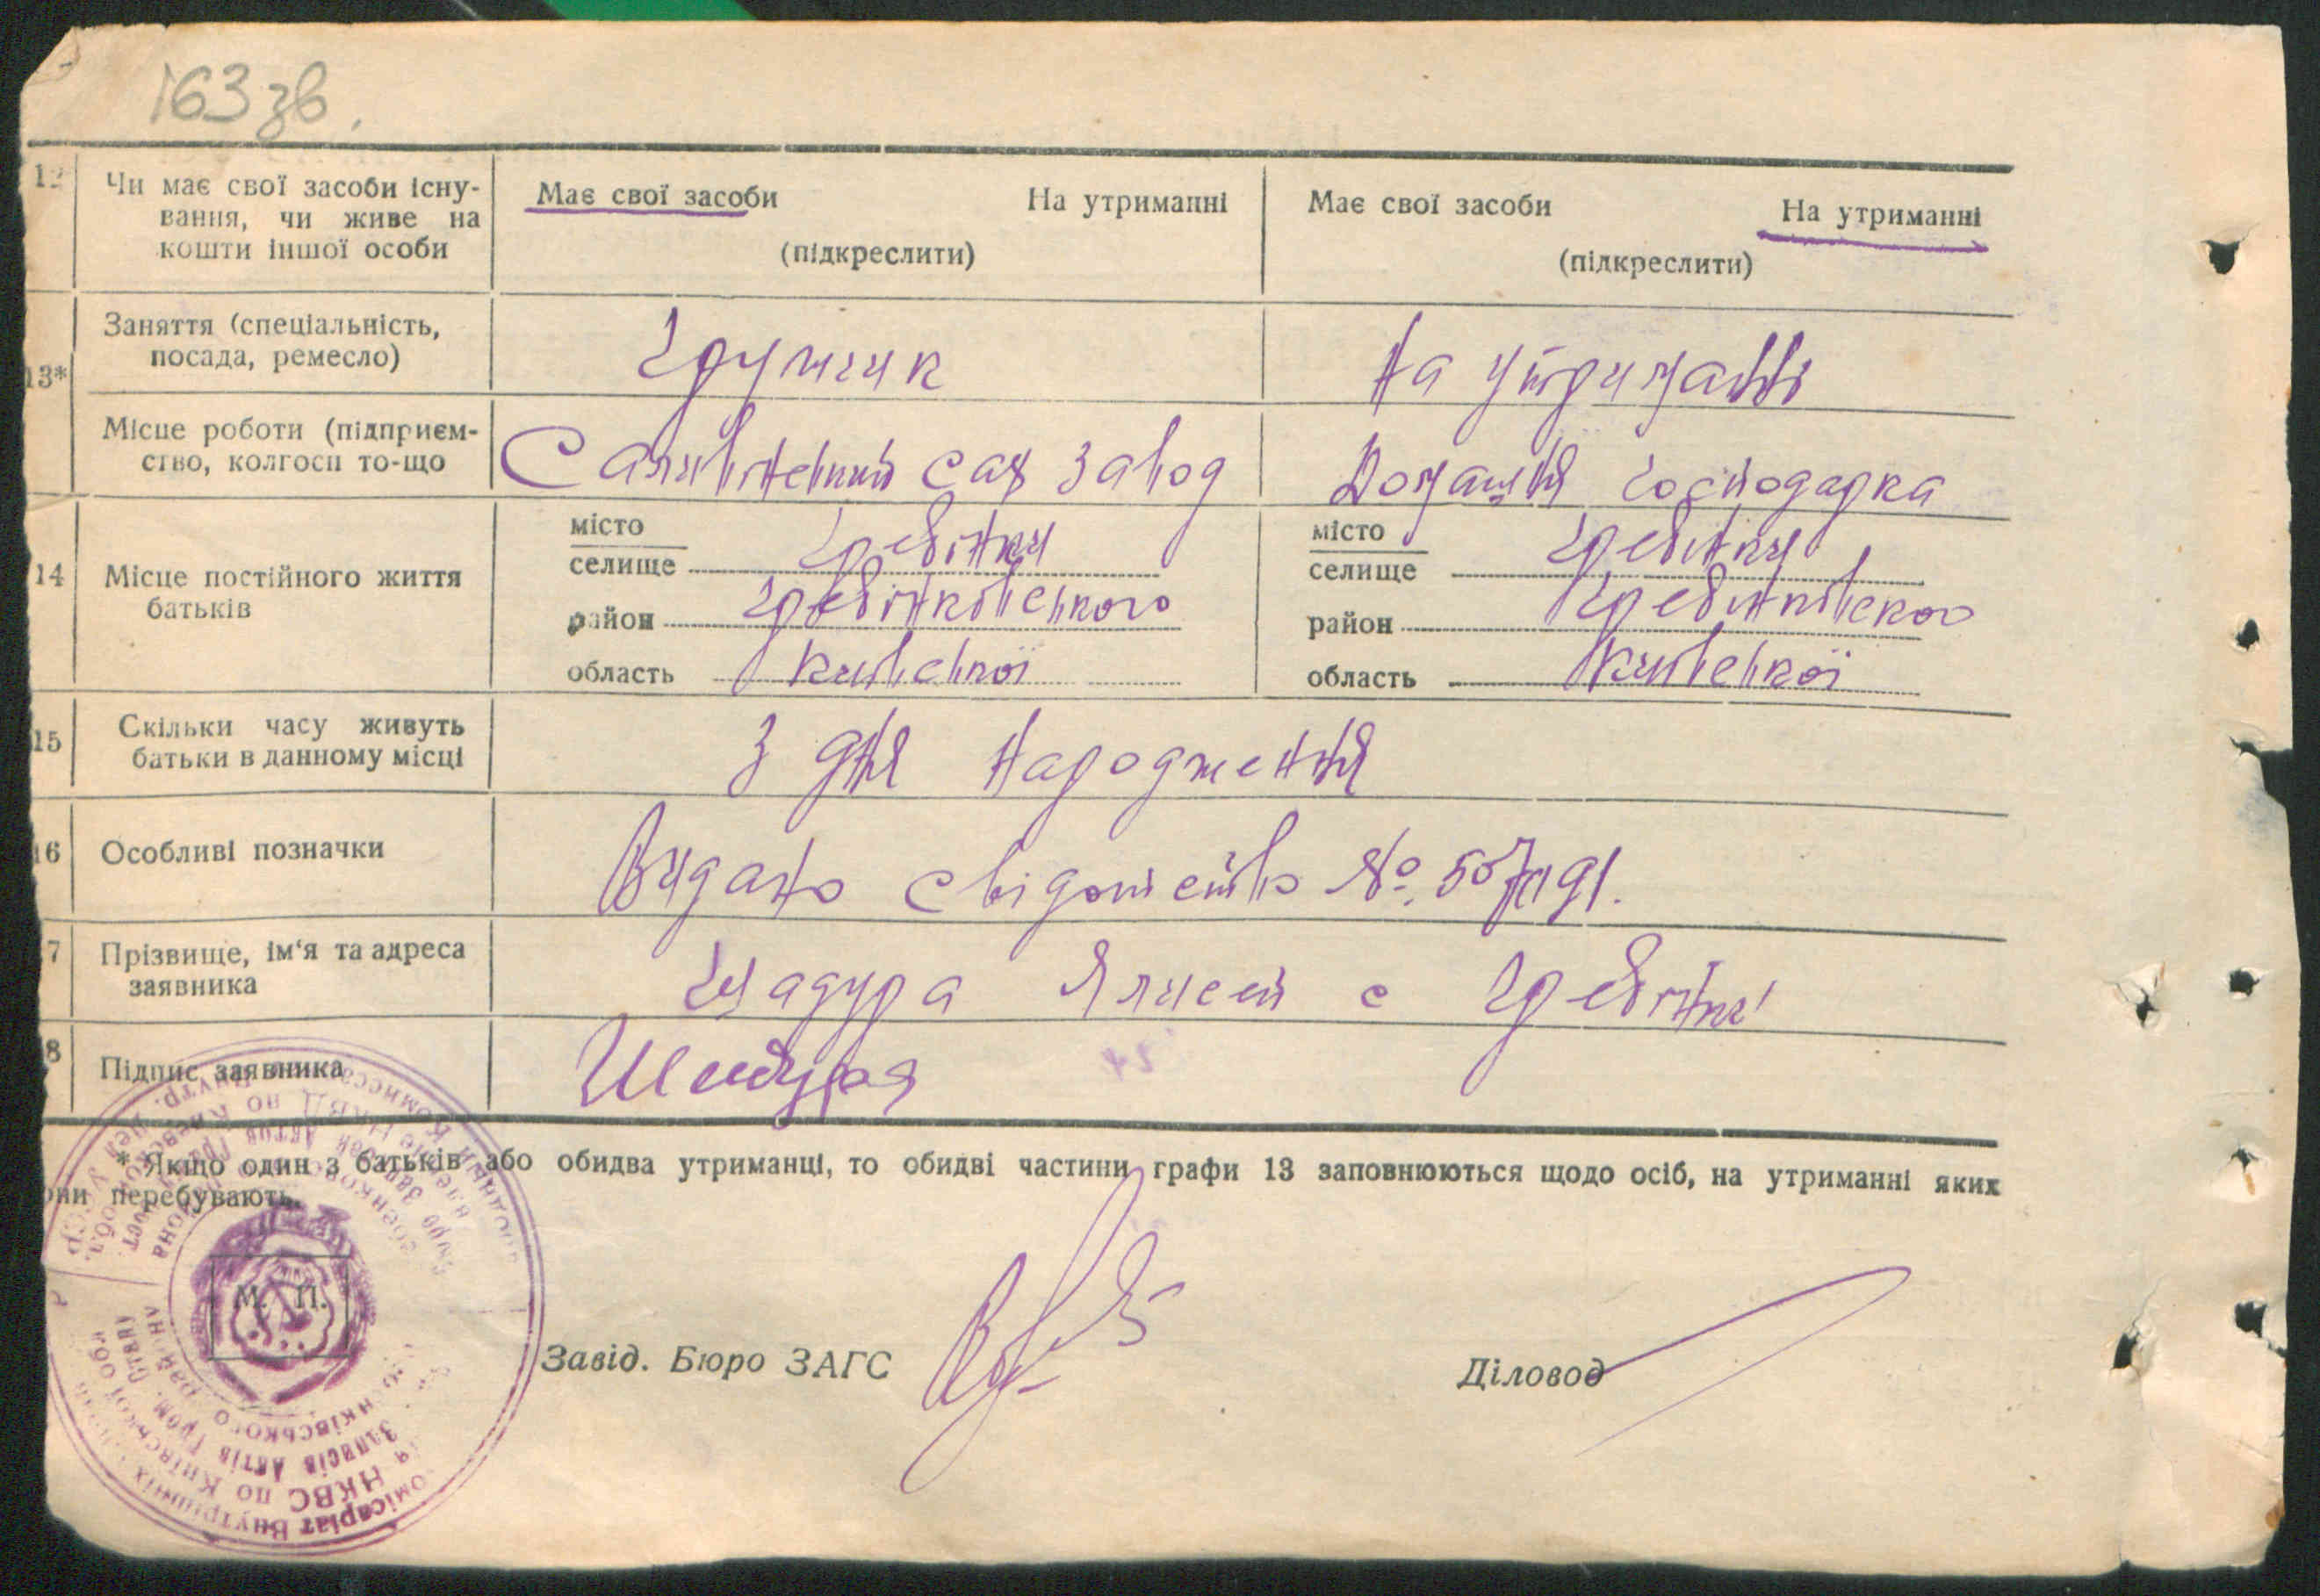 163 зв.
12 Чи має свої засоби існу-
вання, чи живе на
кошти іншої особи
Має свої засоби На утриманні
(підкреслити)
Має свої засоби На утриманні
(підкреслити)
13*
Заняття (спеціальність,
посада, ремесло)
Грущик
На утриманні
Місце роботи (підприєм-
ство, колгосп то-що
Саливонський сах завод
Домашня господарка
14 Місце постійного життя
батьків
місто
селище Гребінки
район Гребінківського
область Київської
місто
селище Гребінки
район Гребінківского
область Київської
15 Скільки часу живуть
батьки в данному місці
З дня народження
16 Особливі позначки
Видано свідотство №
7 Прізвище, ім'я та адреса
заявника
Шадура с Гребінки
8 Підпис заявника
Шадура
* Якщо один з батьків або обидва утриманці, то обидві частини графи 13 заповнюються щодо осіб, на утриманні яких
они перебувають.
М. П.
Завід. Бюро ЗАГС
Діловод